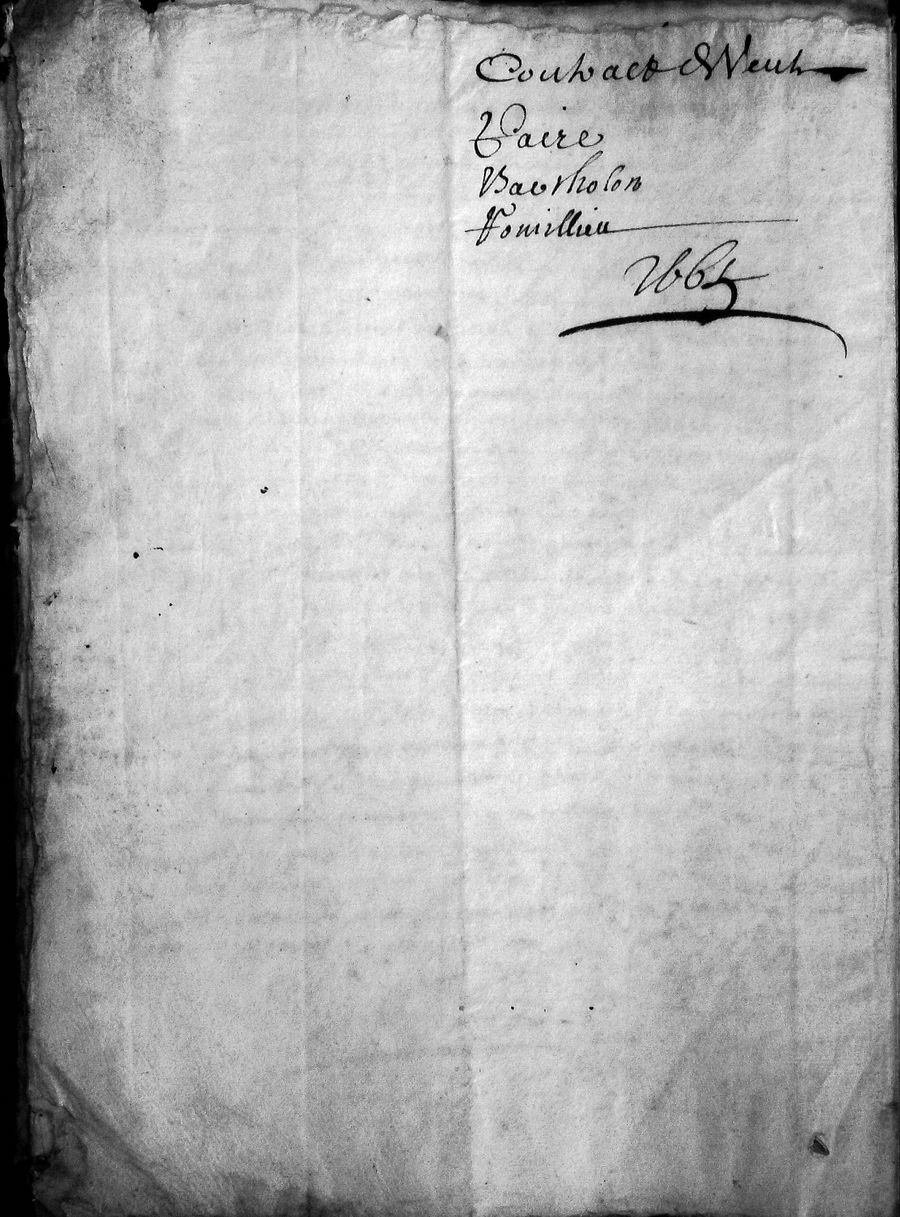 Contract de Vent
Paire
Barthelon
Fomillieu
1665